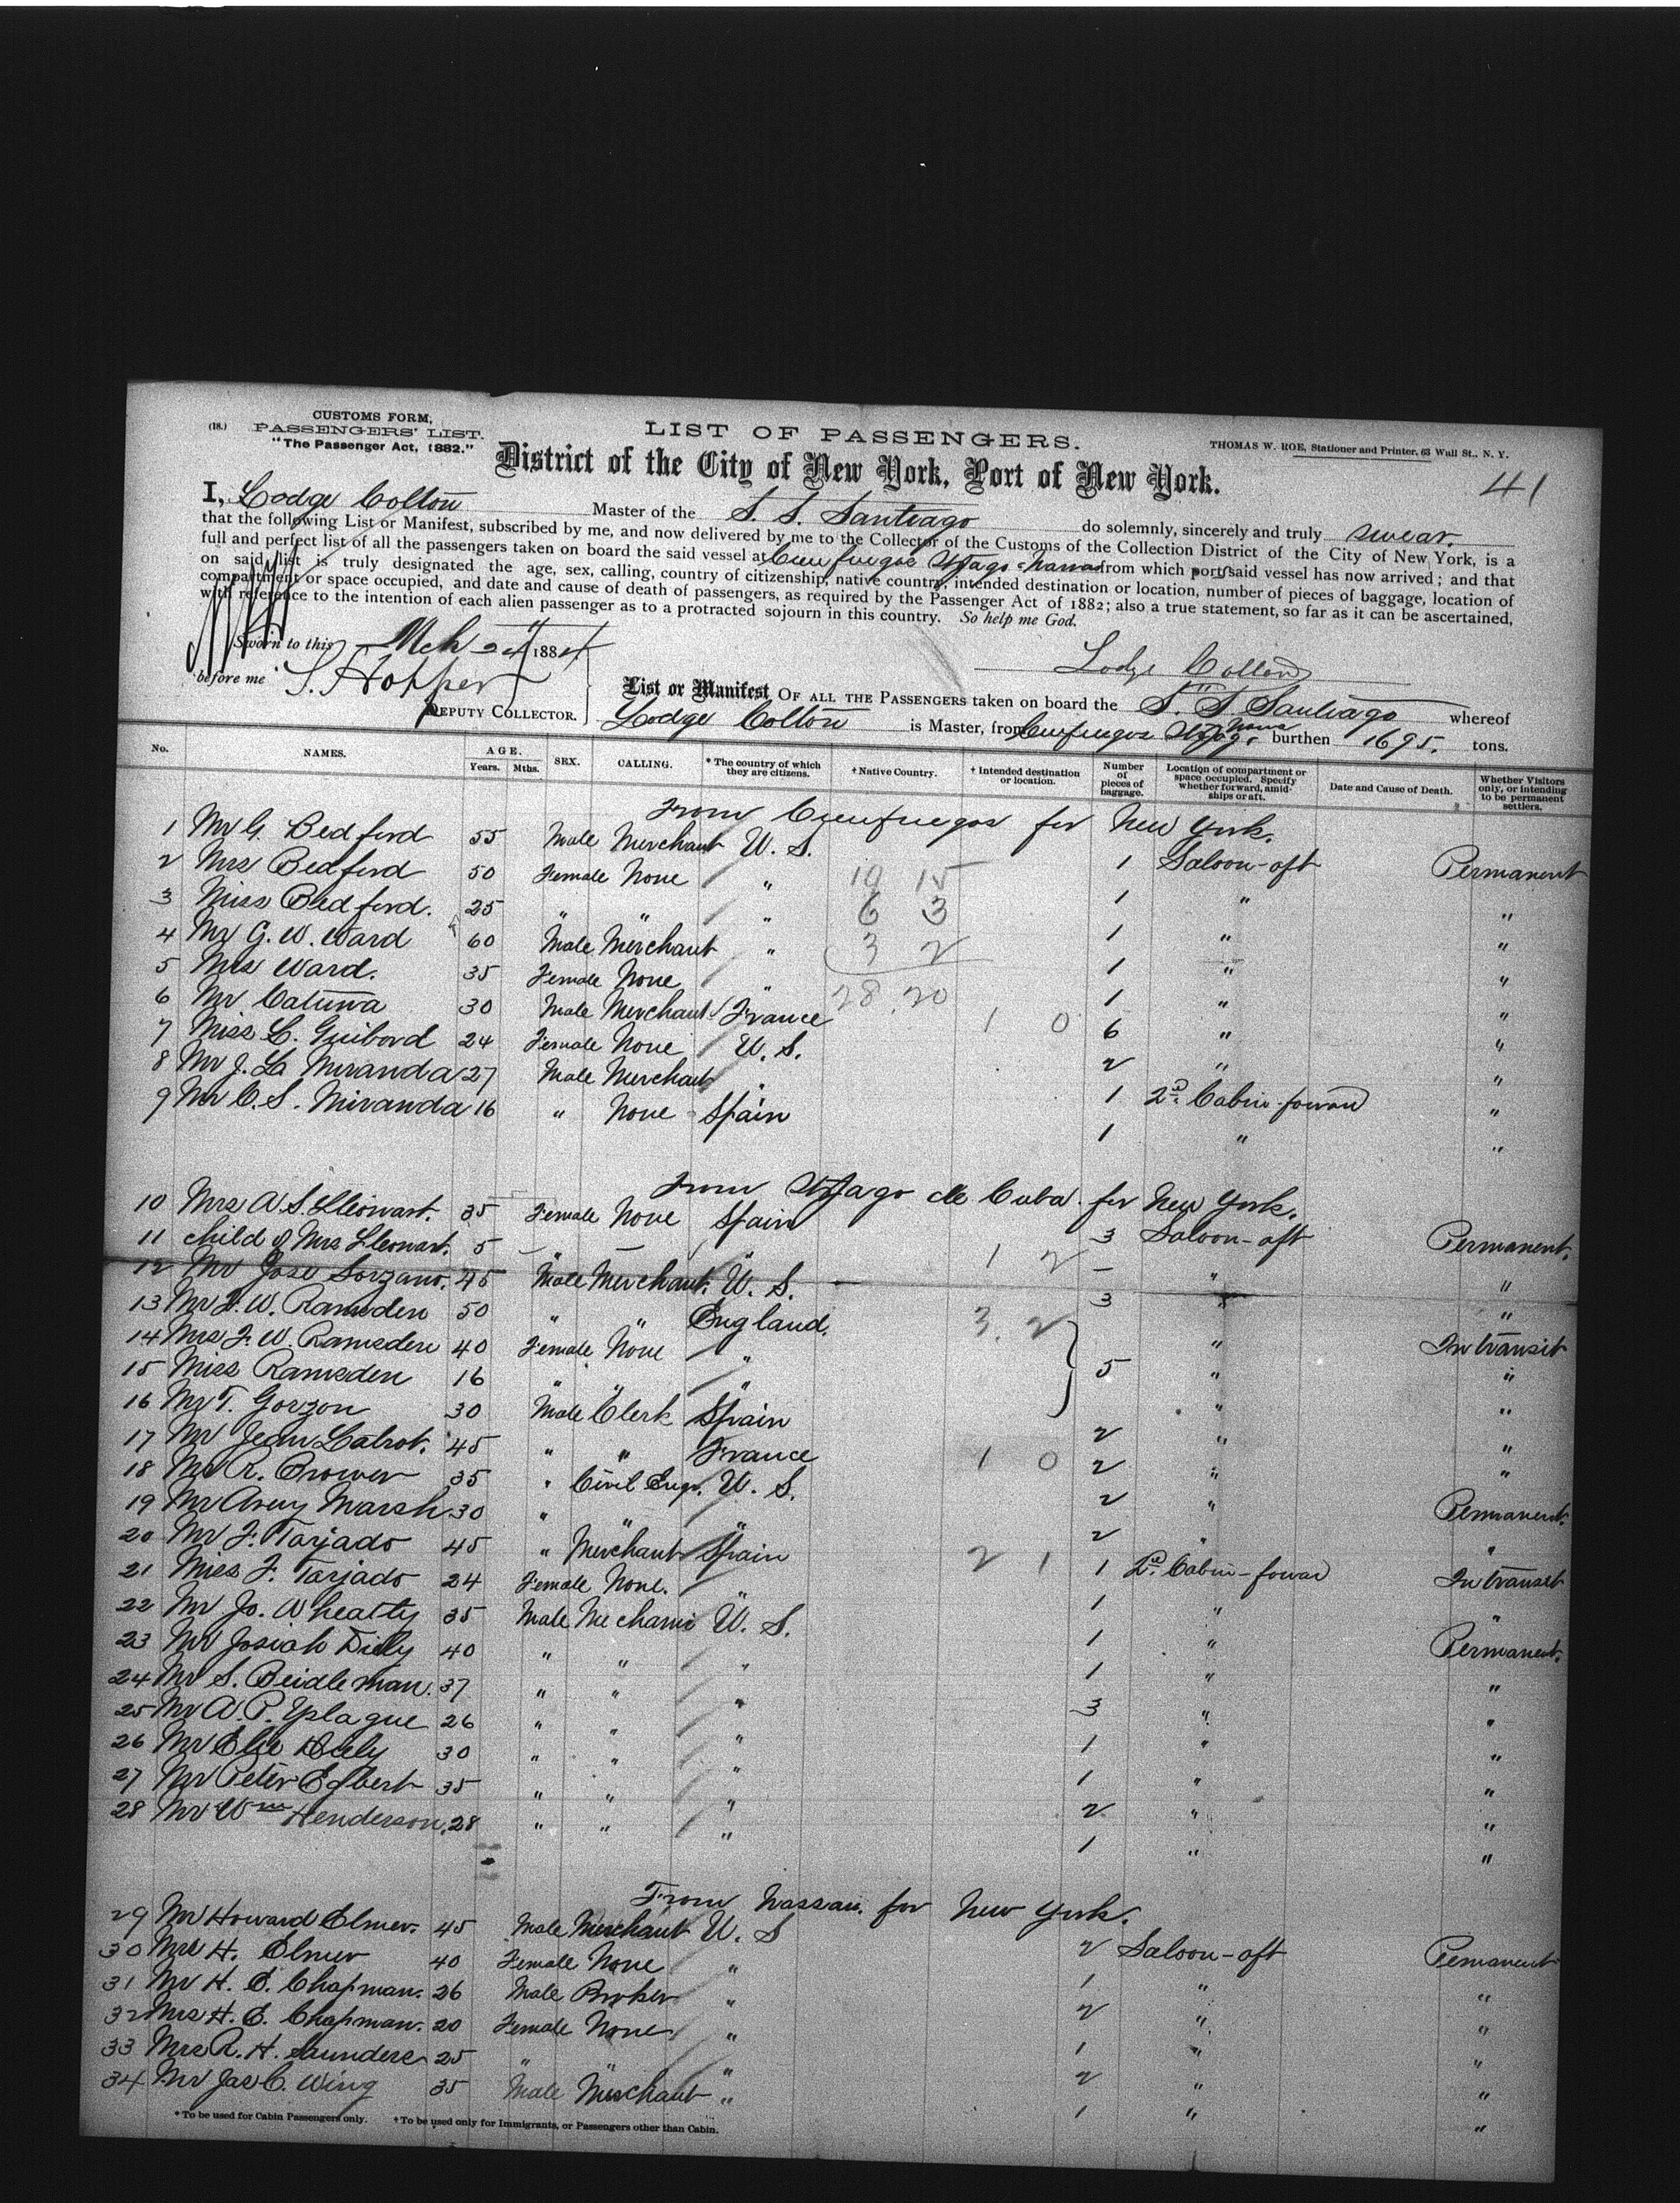 CUSTOMS FORM,
(18.) PASSENGERS' LIST.
"The Passenger Act, 1882."
LIST OF PASSENGERS.
THOMAS W. ROE, Stationer and Printer, 63 Wall St., N. Y.
District of the City of New York, Port of New York.
41
I, Lodge Colton Master of the S. S. Santiago do solemnly, sincerely and truly swear.
that the following List or Manifest, subscribed by me, and now delivered by me to the Collector of the Customs of the Collection District of the City of New York, is a
full and perfect list of all the passengers taken on board the said vessel at Cienfuegos St Jago Nassau from which ports said vessel has now arrived; and that
on said list is truly designated the age, sex, calling, country of citizenship, native country, intended destination or location, number of pieces of baggage, location of
compartment or space occupied, and date and cause of death of passengers, as required by the Passenger Act of 1882; also a true statement, so far as it can be ascertained,
with reference to the intention of each alien passenger as to a protracted sojourn in this country. So help me God.
Sworn to this Mch 24 1884
Lodge Colton
before me S. Hopper
DEPUTY COLLECTOR.
List or Manifest OF ALL THE PASSENGERS taken on board the S. S. Santiago whereof
Lodge Colton is Master, from Cienfuegos St Jago Nassau burthen 1695. tons.
No. NAMES. AGE. Years. Mths. SEX. CALLING. * The country of which they are citizens. † Native Country. † Intended destination or location. Number of pieces of baggage. Location of compartment or space occupied. Specify whether forward, amidships or aft. Date and Cause of Death. Whether Visitors only, or intending to be permanent settlers.
From Cienfuegos for New York.
1 Mr G. Bedford 55 Male Merchant U. S. 1 Saloon-aft Permanent
2 Mrs Bedford 50 Female None " 10 15 1 " "
3 Miss Bedford. 25 " " " 6 3 1 " "
4 Mr G. W. Ward 60 Male Merchant " 3 2 1 " "
5 Mrs Ward. 35 Female None " 28 20 1 " "
6 Mr 30 Male Merchant France 1 0 6 " "
7 Miss C. Guibord 24 Female None U. S. 2 " "
8 Mr J. La Miranda 27 Male Merchant " 1 2d Cabin-forward "
9 Mr C. S. Miranda 16 " None Spain 1 " "
From St Jago de Cuba for New York.
10 Mrs A. S. 35 Female None Spain 3 Saloon-aft Permanent.
11 child of Mrs 5 — — " 1 2 — " "
12 Mr Jose Sorzano. 45 Male Merchant. U. S. 3 " "
13 Mr F. W. Ramsden 50 " " England. 3. 2 " In transit
14 Mrs F. W. Ramsden 40 Female None " 5 " "
15 Miss Ramsden 16 " " " " "
16 Mr T. Gorzon 30 Male Clerk Spain 2 " "
17 Mr Jean Labrot. 45 " " France 1 0 2 " "
18 Mr R. Brower 35 " Civil Engr. U. S. 2 " Permanent.
19 Mr Avery Marsh 30 " " " 2 " "
20 Mr F. Tarjado 45 " Merchant Spain 2 1 1 2d Cabin-forward In transit
21 Miss F. Tarjado 24 Female None. " 1 " "
22 Mr Jo. Wheatty 35 Male Mechanic U. S. 1 " Permanent.
23 Mr Josiah Dily 40 " " " 1 " "
24 Mr S. Beidleman. 37 " " " 3 " "
25 Mr A. P. Yplague 26 " " " 1 " "
26 Mr Elie 30 " " " 1 " "
27 Mr Peter Egbert 35 " " " 2 " "
28 Mr Wm Henderson. 28 " " " 1 " "
From Nassau for New York.
29 Mr Howard Elmer. 45 Male Merchant U. S 2 Saloon-aft Permanent
30 Mrs H. Elmer 40 Female None " 1 " "
31 Mr H. E. Chapman. 26 Male Broker " 2 " "
32 Mrs H. E. Chapman. 20 Female None " 1 " "
33 Mrs R. H. Saunders 25 " " " 2 " "
34 Mr Jas C. Wing 35 Male Merchant " 1 " "
* To be used for Cabin Passengers only. † To be used only for Immigrants, or Passengers other than Cabin.